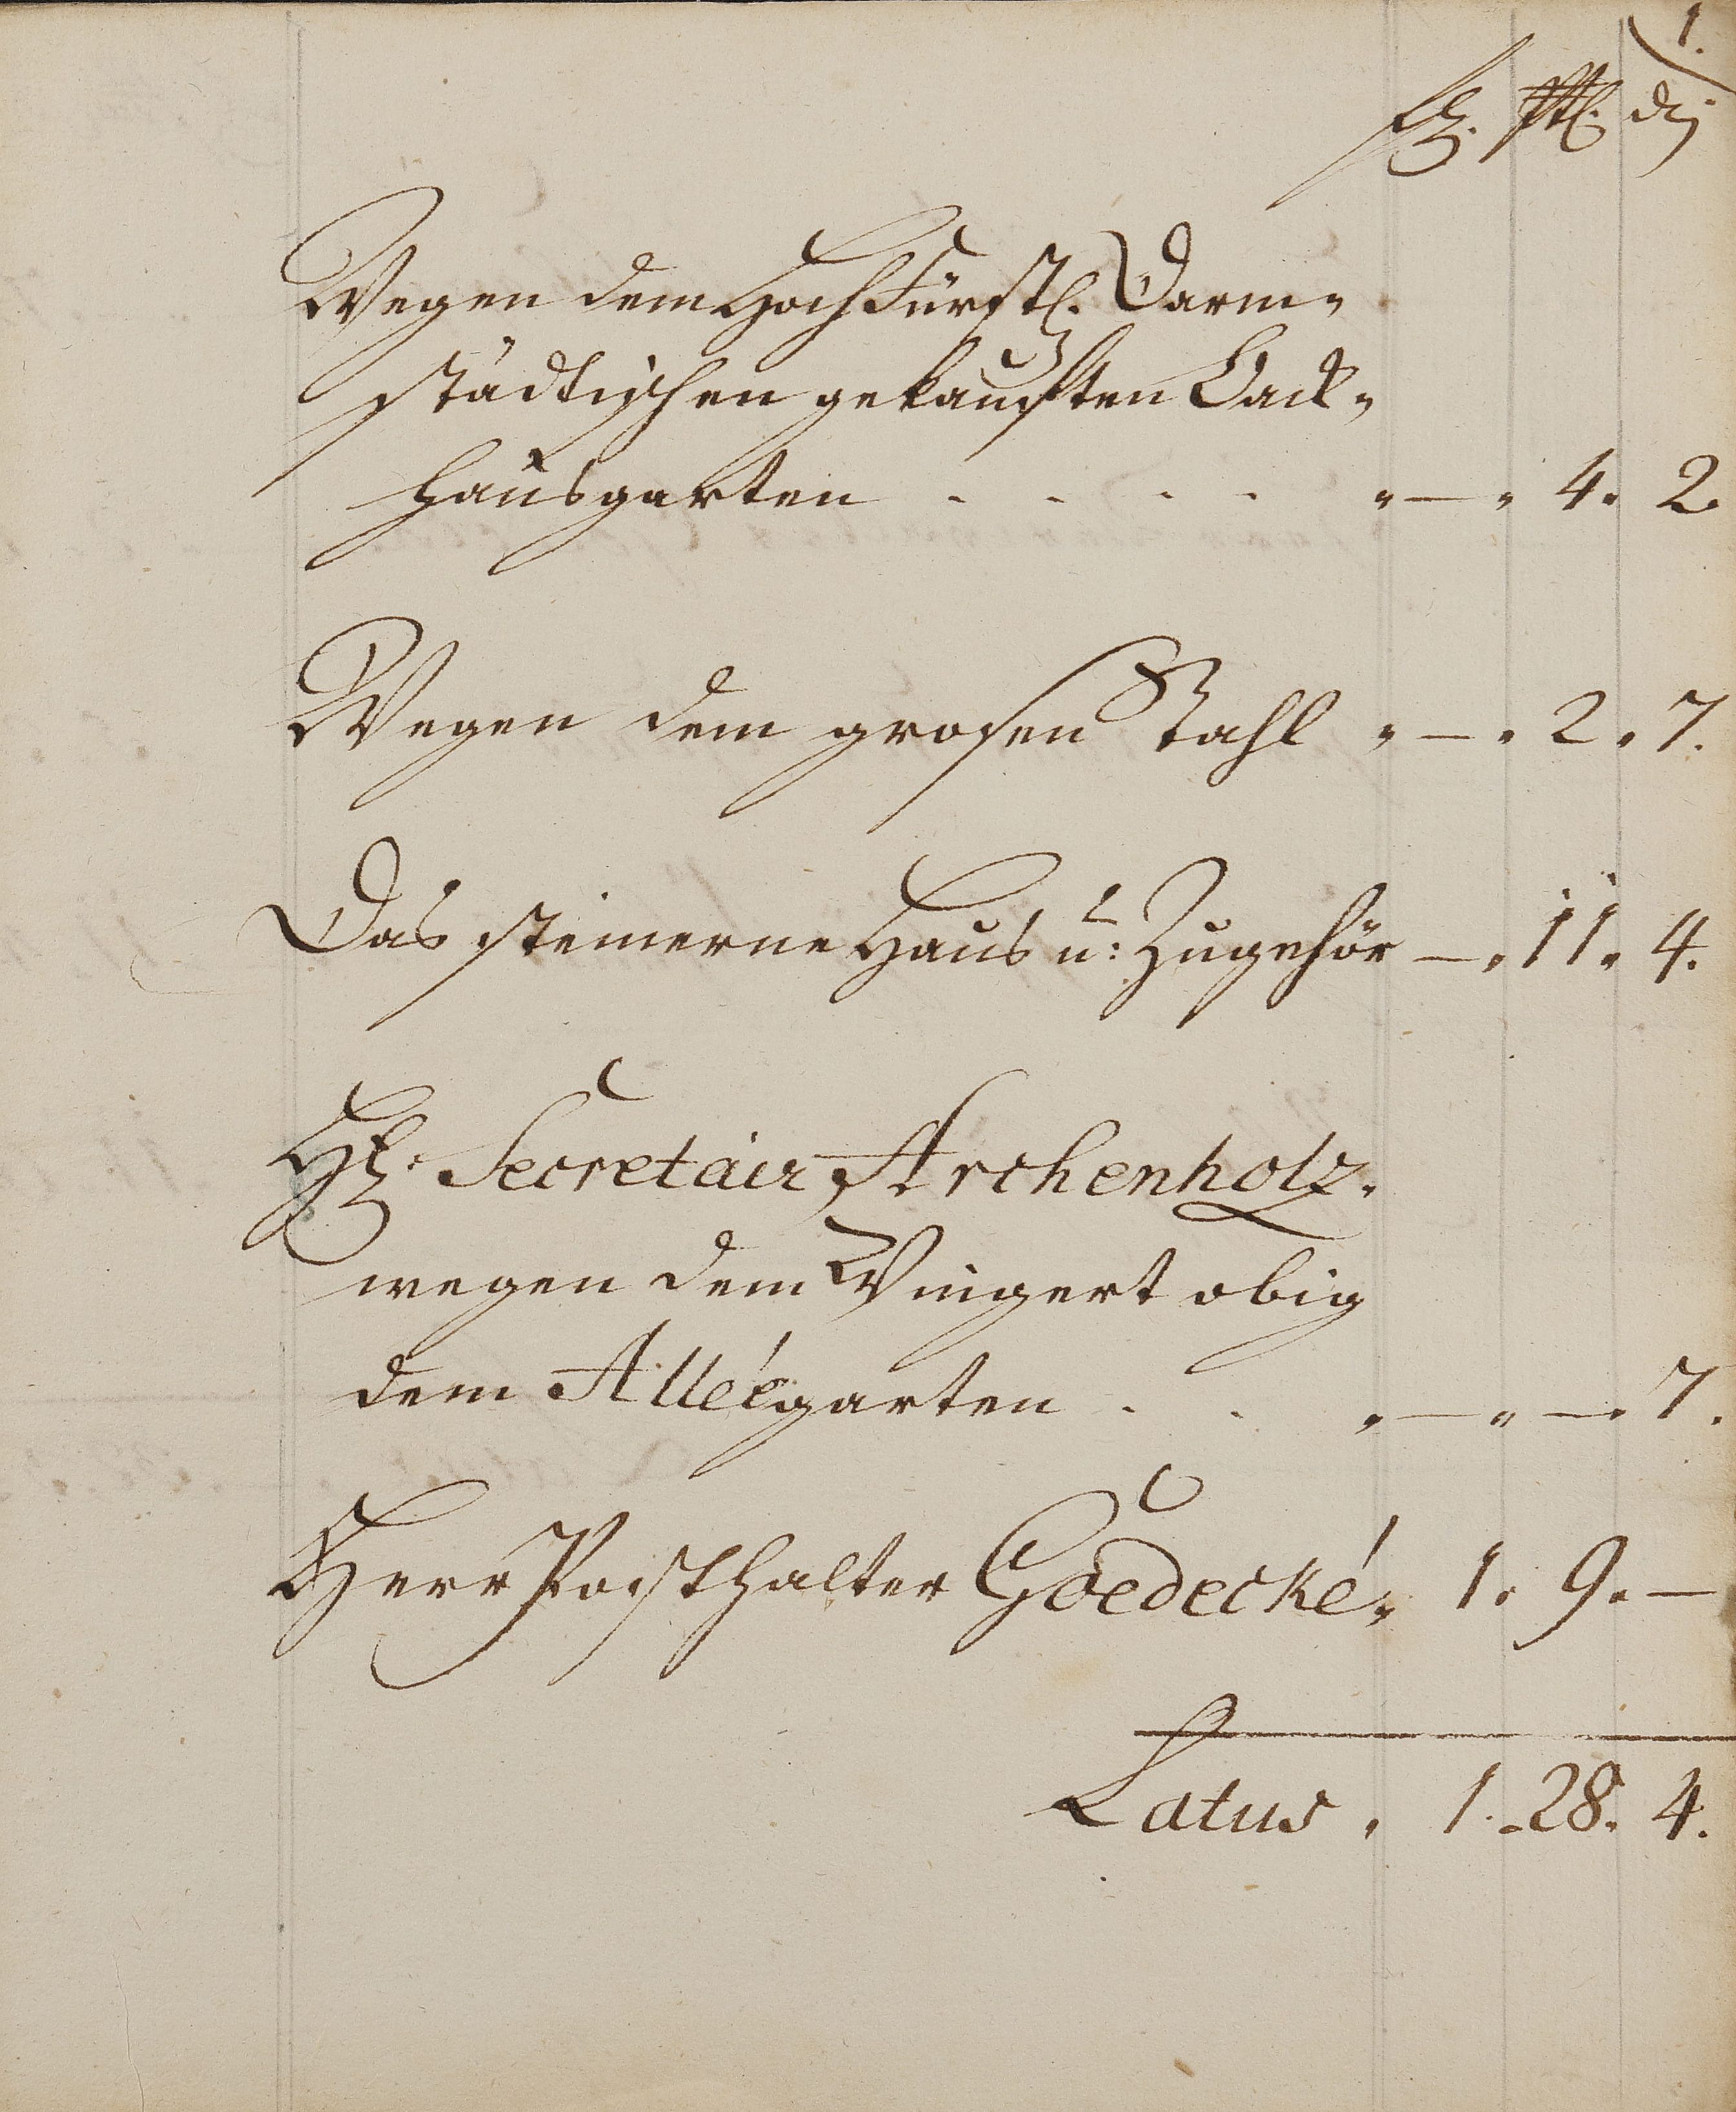 1.
fl. ß. dr.
Wegen dem HochFürstl. Darm=
städtischen gekauften Back=
haußgarten . . . . " — " 4. 2.
Wegen dem grosen Stahl " — . 2. 7.
Das steinerne Haus u: Zugehör — . 11. 4.
H. Secretair Archenholz.
wegen dem Wingert obig
dem Alléegarten . . . — " — . 7.
Herr Posthalter Goedecké. 1. 9. —
Latus . 1. 28. 4.